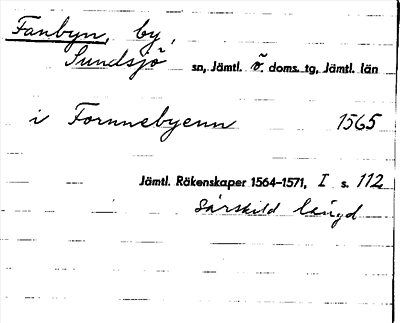 Fanbyn, by,
Sundsjö sn, Jämtl. ö. doms. tg, Jämtl. län
i Fornnebyenn 1565
Jämtl. Räkenskaper 1564–1571, I s. 112
Särskild längd